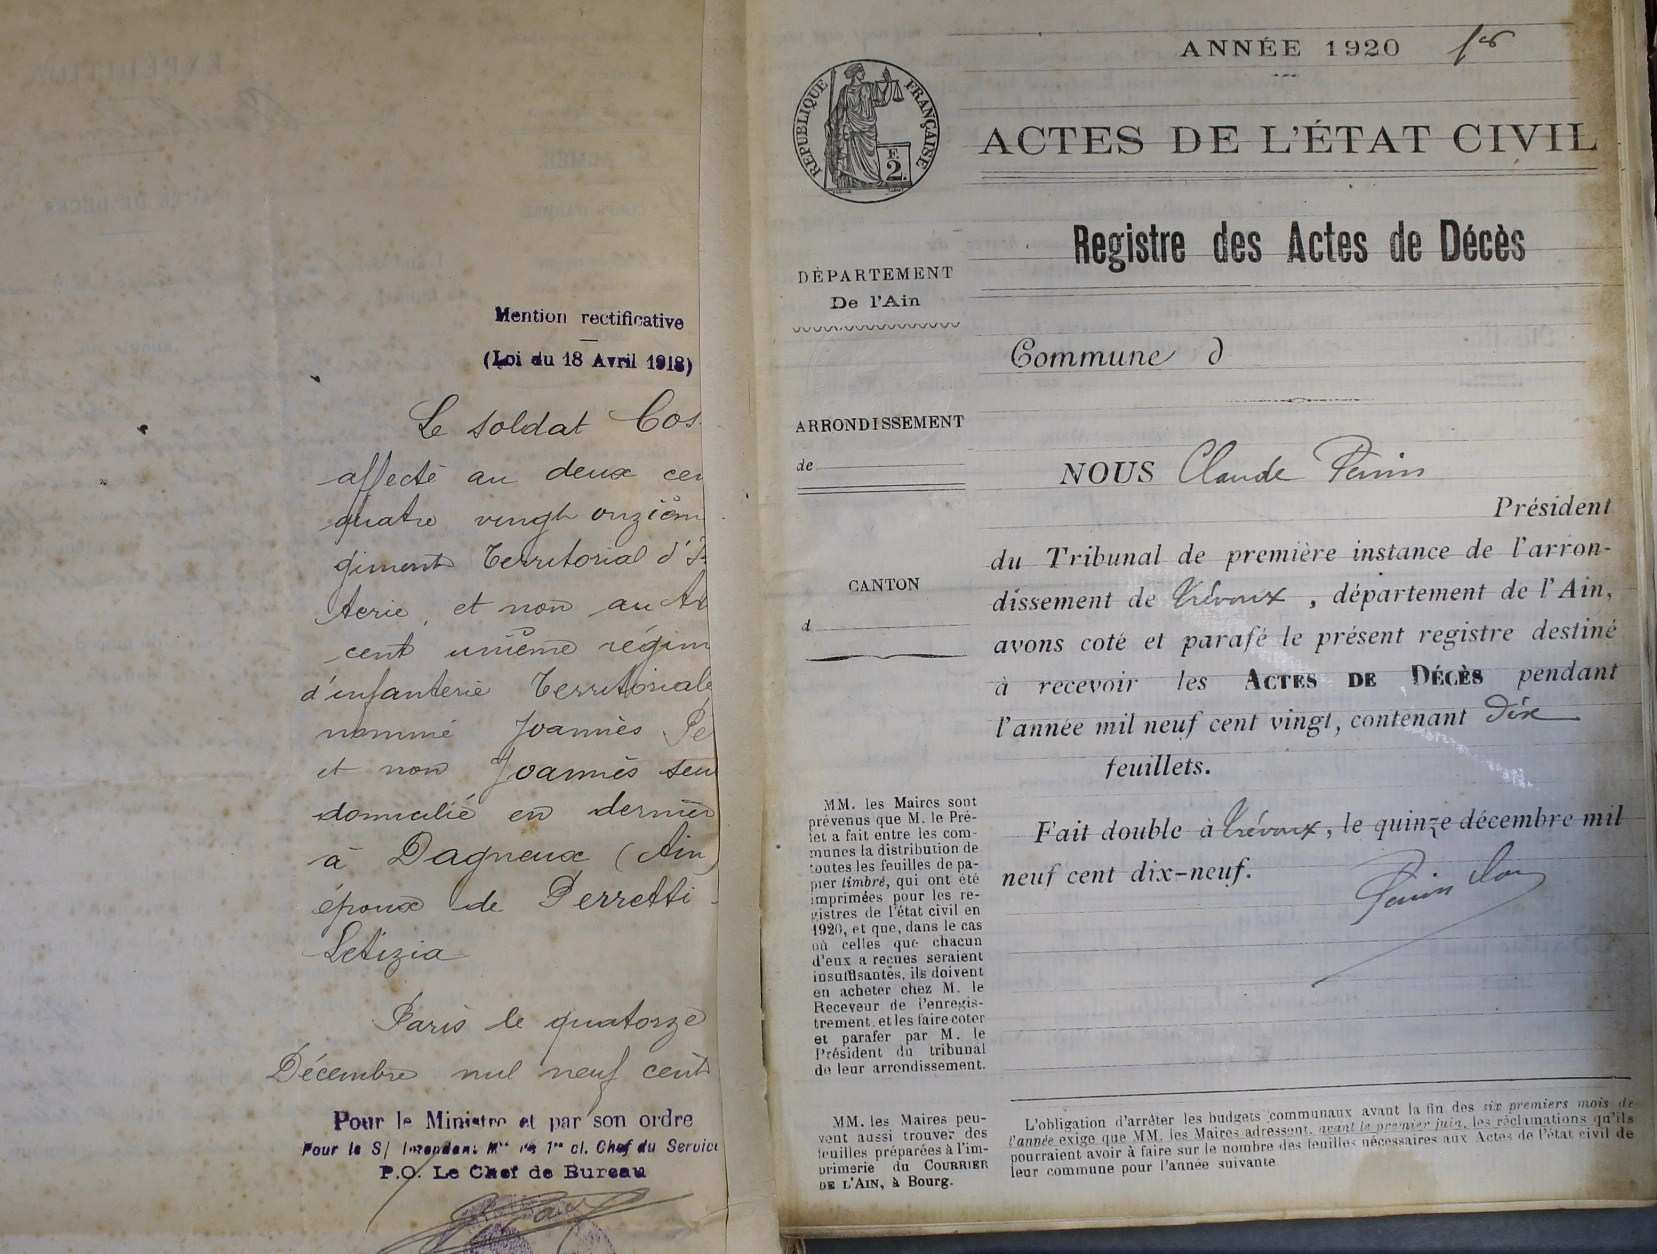 Mention rectificative
(Loi du 18 Avril 1918)
Le soldat Cos
affecté au deux cen
quatre vingt onzièm
giment Territorial d'I
terie, et non au
cent unième régim
d'infanterie Territoriale
nommé Joannès Pe
et non Joannès seu
domicilié en dernier
à Dagneux (Ain)
époux de Perretti
Letizia
Paris le quatorze
Décembre mil neuf cent
Pour le Ministre et par son ordre
Pour le S/ Intendant Mre de 1re cl. Chef du Service
P.O. Le Chef de Bureau
ANNÉE 1920
RÉPUBLIQUE FRANÇAISE
F.
2.
ACTES DE L'ÉTAT CIVIL
Registre des Actes de Décès
DÉPARTEMENT
De l'Ain
Commune d
ARRONDISSEMENT
de
CANTON
d
NOUS Claude Perrin
Président
du Tribunal de première instance de l'arron-
dissement de Trévoux, département de l'Ain,
avons coté et parafé le présent registre destiné
à recevoir les ACTES DE DÉCÈS pendant
l'année mil neuf cent vingt, contenant dix
feuillets.
Fait double à Trévoux, le quinze décembre mil
neuf cent dix-neuf.
Perrin
MM. les Maires sont
prévenus que M. le Pré-
fet a fait entre les com-
munes la distribution de
toutes les feuilles de pa-
pier timbré, qui ont été
imprimées pour les re-
gistres de l'état civil en
1920, et que, dans le cas
où celles que chacun
d'eux a reçues seraient
insuffisantes, ils doivent
en acheter chez M. le
Receveur de l'enregis-
trement, et les faire coter
et parafer par M. le
Président du tribunal
de leur arrondissement.
MM. les Maires peu-
vent aussi trouver des
feuilles préparées à l'im-
primerie du COURRIER
DE L'AIN, à Bourg.
L'obligation d'arrêter les budgets communaux avant la fin des six premiers mois de
l'année exige que MM. les Maires adressent, avant le premier juin, les réclamations qu'ils
pourraient avoir à faire sur le nombre des feuilles nécessaires aux Actes de l'état civil de
leur commune pour l'année suivante